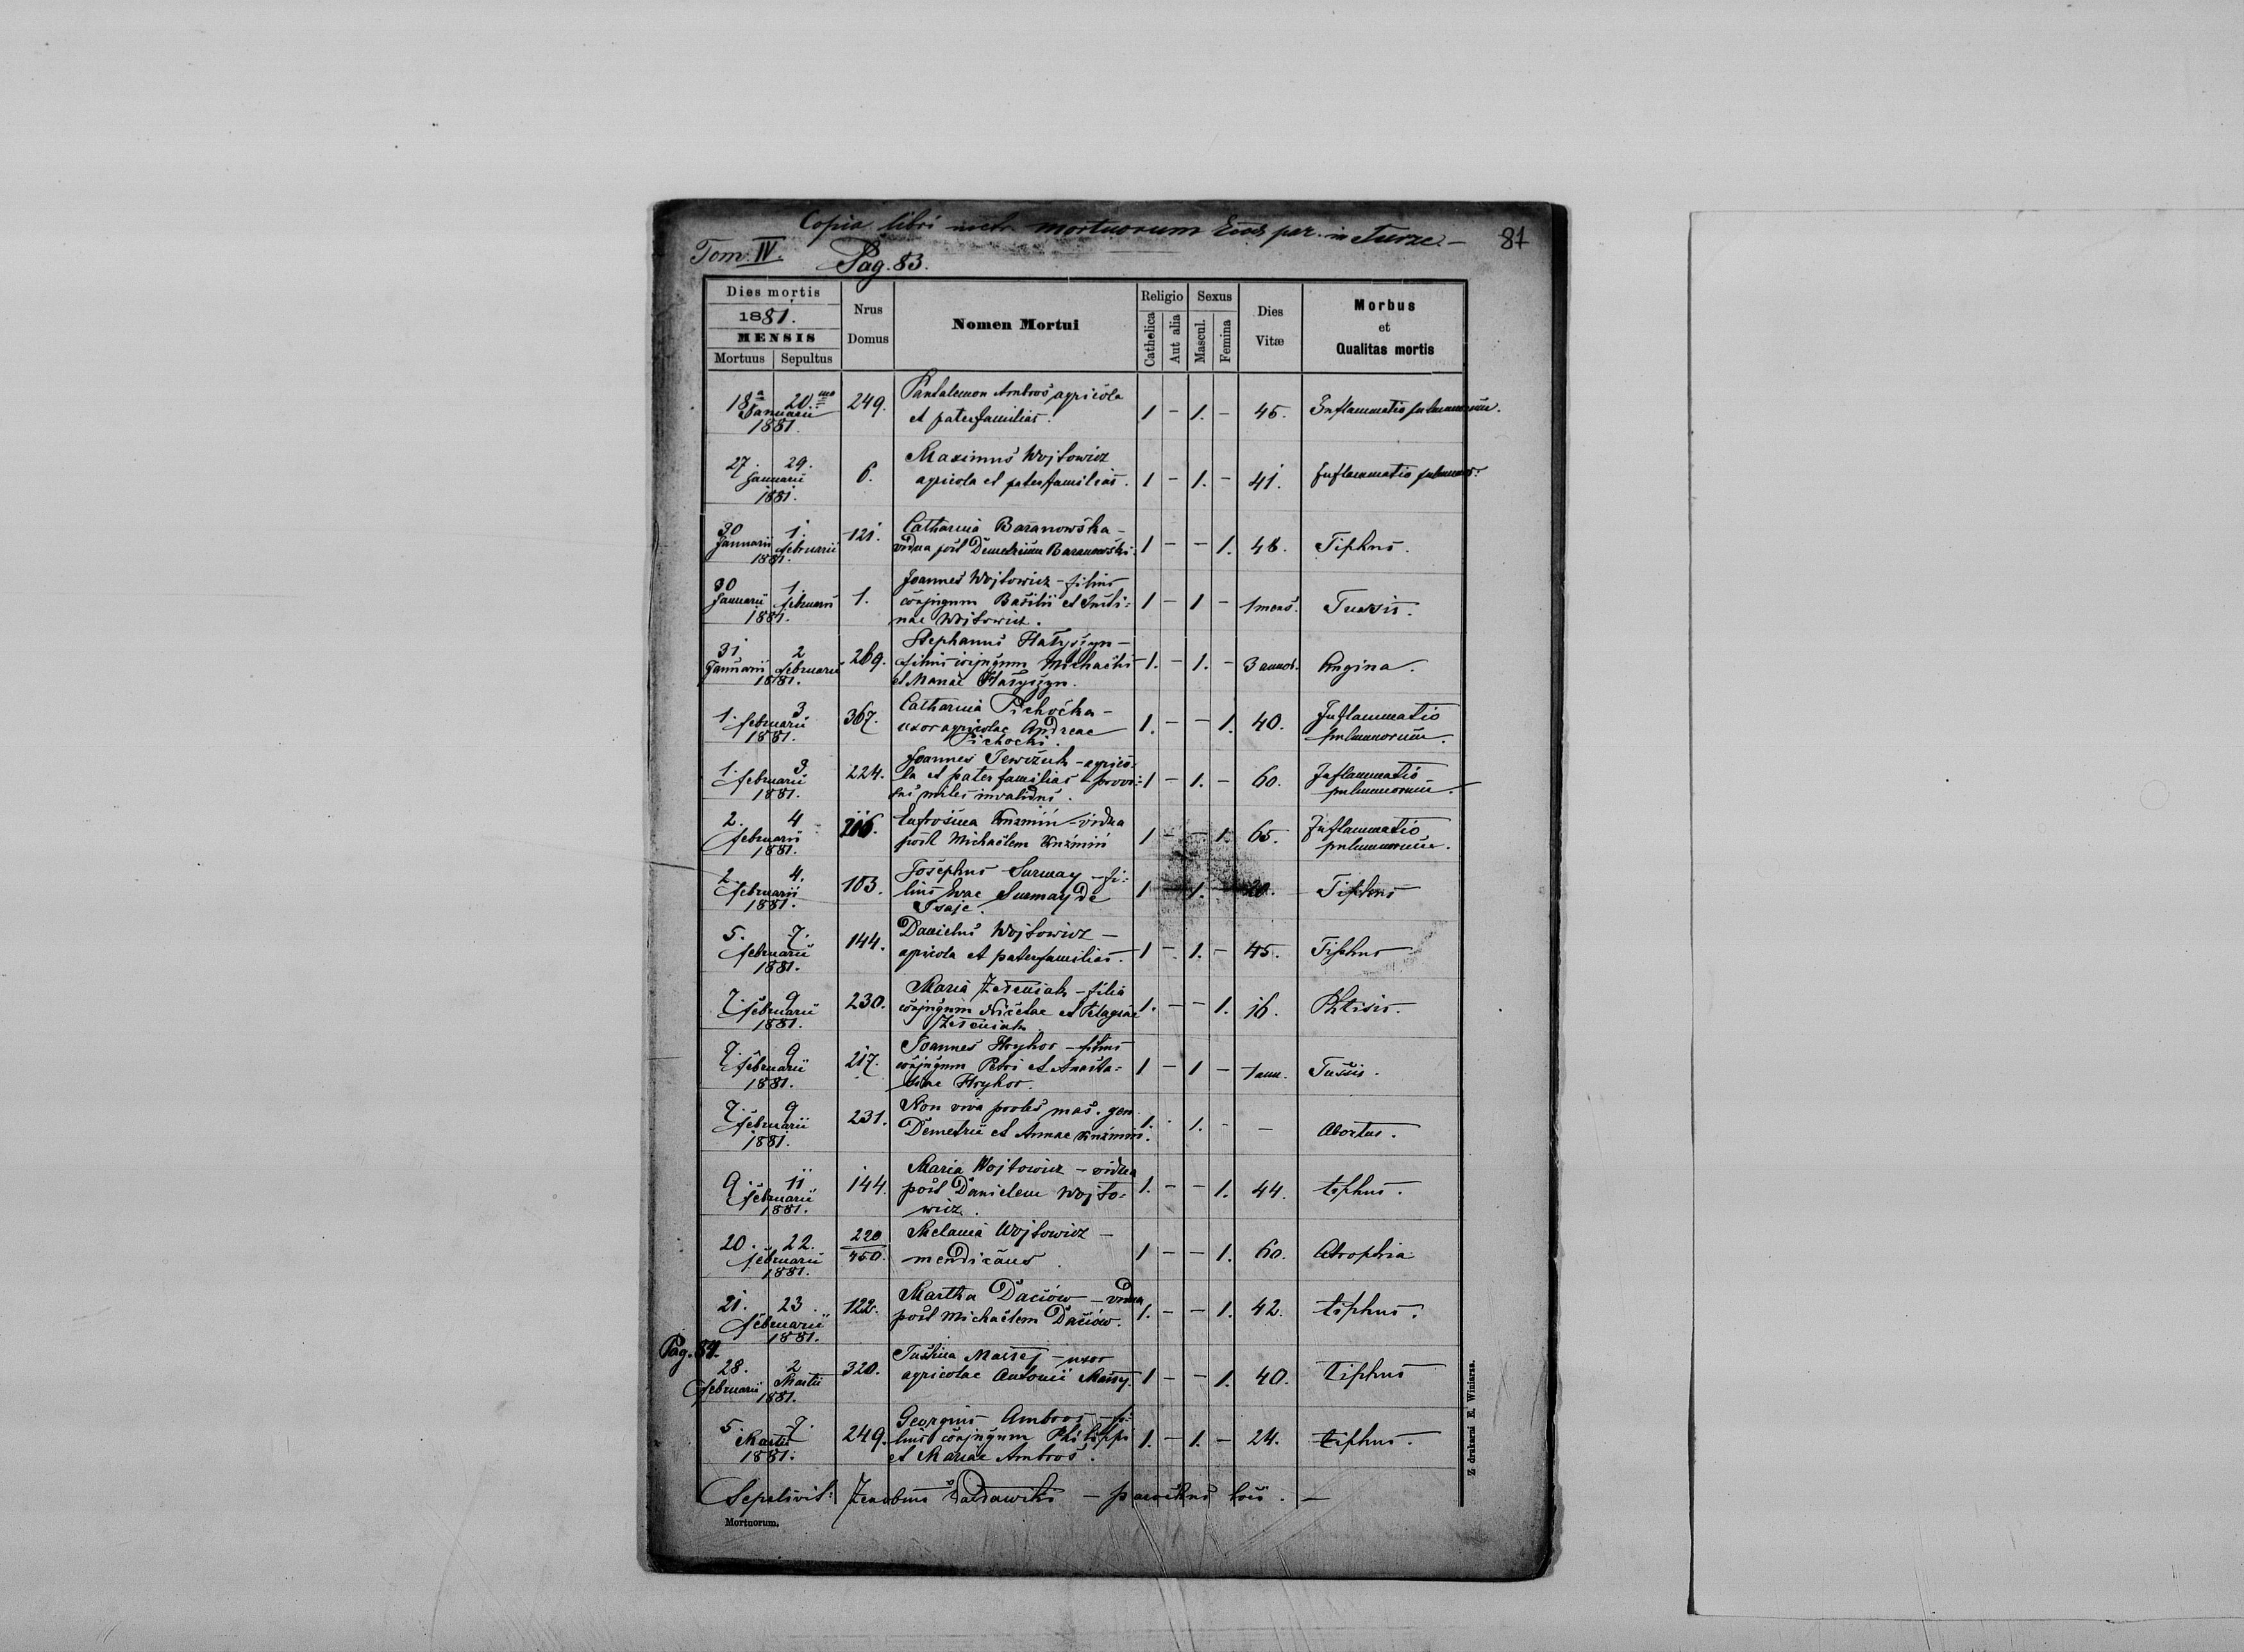 Copia libri metr. mortuorum Eccl. par. in Turze. —
87
Tom. IV. Pag. 83.
Dies mortis
1881.
MENSIS
Mortuus Sepultus
Nrus Domus
Nomen Mortui
Religio
Catholica Aut alia
Sexus
Mascul. Femina
Dies Vitæ
Morbus et Qualitas mortis
18a 20mo 249. Pantalemon Ambros agricola 1 – 1. – 45. Inflammatio pulmonorum.
Januarii et paterfamilias.
1881.
27. 29. 6. Maximus Wojtowicz 1 – 1. – 41. Inflammatio pulmonor.
Januarii agricola et paterfamilias.
1881.
30 1. 121. Catharina Baranowska – 1 – – 1. 48. Tiphus.
Januarii februarii vidua post Demetrium Baranowski.
1881.
30 1. 1. Joannes Wojtowicz – filius 1 – 1 – 1 mens. Tussis.
Januarii februarii conjugum Basilii et Justi=
1881. nae Wojtowicz.
31 2 269. Stephanus Hatyszyn – 1. – 1. – 3 annor. Angina.
Januarii februarii filius conjugum Michaelis
1881. et Mariae Hatyszyn.
1. 3 367. Catharina Pichocka – 1. – – 1. 40. Inflammatio
februarii uxor agricolae Andreae pulmonorum.
1881. Pichocki.
1. 3 224. Joannes Tewczuk – agrico= 1 – 1. – 60. Inflammatio
februarii la et paterfamilias – provi= pulmonorum.
1881. sus miles invalidus.
2. 4 216. Eufrosina Kuzmin – vidua 1 – – 1. 65. Inflammatio
februarii post Michaelem Kuzmin pulmonorum.
1881.
2. 4. 103. Josephus Surmay – fi= 1 – 1. – 20. Tiphus
februarii lius Evae Surmay de
1881. Isaje.
5. 7. 144. Danielus Wojtowicz – 1 – 1. – 45. Tiphus
februarii agricola et paterfamilias.
1881.
7. 9 230. Maria – filia 1. – – 1. 16. Phtisis.
februarii conjugum Nicetae et Pelagiae
1881.
7. 9 217. Joannes Hryhor – filius 1 – 1 – 1 ann. Tussis.
februarii conjugum Petri et Anasta=
1881. siae Hryhor.
7. 9 231. Non viva proles mas. gen. 1. 1. – – Abortus.
februarii Demetrii et Annae Kuzmin.
1881.
9. 11 144. Maria Wojtowicz – vidua 1. – – 1. 44. tiphus.
februarii post Danielem Wojto=
1881. wicz.
20. 22. 220/450. Melania Wojtowicz – 1 – – 1. 60. Atrophia
februarii mendicans.
1881.
21. 23. 122. Martha Daciów – vidua 1. – – 1. 42. tiphus.
februarii post Michaelem Daciów.
1881.
Pag. 84.
28. 2 320. Justina Massej – uxor 1 – – 1. 40. tiphus
februarii Martii agricolae Antonii Massej.
1881.
5. 7. 249. Georgius Ambros – fi= 1. – 1. – 24. tiphus.
Martii lius conjugum Philippi
1881. et Mariae Ambros.
Sepelivit: Zenobius – parochus loci. —
Mortuorum.
Z drukarni E. Winiarza.